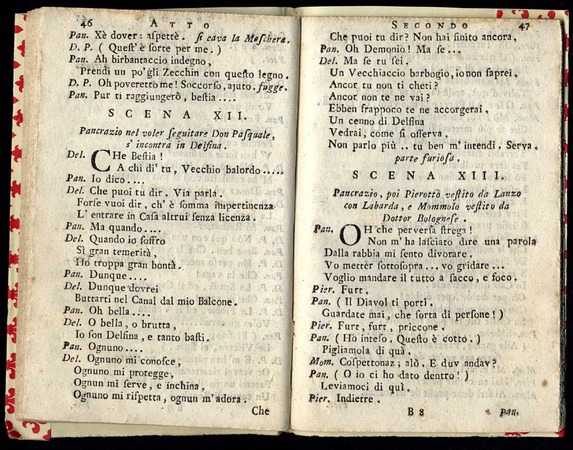 46 ATTO
Pan. Xè dover: aspettè. si cava la Maschera.
D. P. ( Quest' è forte per me. )
Pan. Ah birbantaccio indegno,
Prendi un po'gli Zecchin con questo legno.
D. P. Oh poveretto me! Soccorso, ajuto. fugge.
Pan. Pur ti raggiungerò, bestia....
SCENA XII.
Pancrazio nel voler seguitare Don Pasquale,
s' incontra in Delfina.
Del. CHe Bestia!
A chi di' tu, Vecchio balordo....
Pan. Io dico....
Del. Che puoi tu dir. Via parla.
Forse vuoi dir, ch' è somma impertinenza
L' entrare in Casa altrui senza licenza.
Pan. Ma quando....
Del. Quando io soffro
Sì gran temerità,
Ho troppa gran bontà.
Pan. Dunque....
Del. Dunque dovrei
Buttarti nel Canal dal mio Balcone.
Pan. Oh bella....
Del. O bella, o brutta,
Io son Delfina, e tanto basti.
Pan. Ognuno....
Del. Ognuno mi conosce,
Ognuno mi protegge,
Ognun mi serve, e inchina,
Ognuno mi rispetta, ognun m'adora.
Che
SECONDO 47
Che puoi tu dir? Non hai finito ancora,
Pan. Oh Demonio! Ma se...
Del. Ma se tu sei.
Un Vecchiaccio barbogio, io non saprei.
Ancor tu non ti cheti?
Ancor non te ne vai?
Ebben frappoco te ne accorgerai.
Un cenno di Delfina
Vedrai, come si osserva.
Non parlo più .. tu ben m' intendi. Serva.
parte furiosa.
SCENA XIII.
Pancrazio, poi Pierotto vestito da Lanzo
con Labarda, e Mommolo vestito da
Dottor Bolognese.
Pan. OH che perversa strega!
Non m' ha lasciato dire una parola
Dalla rabbia mi sento divorare.
Vo metter sottosopra... vo gridare...
Voglio mandare il tutto a sacco, e foco.
Pier. Furt.
Pan. ( Il Diavol ti porti.
Guardate mai, che sorta di persone! )
Pier. Furt, furt, priccone.
Pan. ( Ho inteso. Questo è cotto. )
Pigliamola di quà.
Mom. Cospettonaz; alò. E duv andav?
Pan. ( O io ci ho dato dentro! )
Leviamoci di quì.
Pier. Indietre.
B 8 Pan.